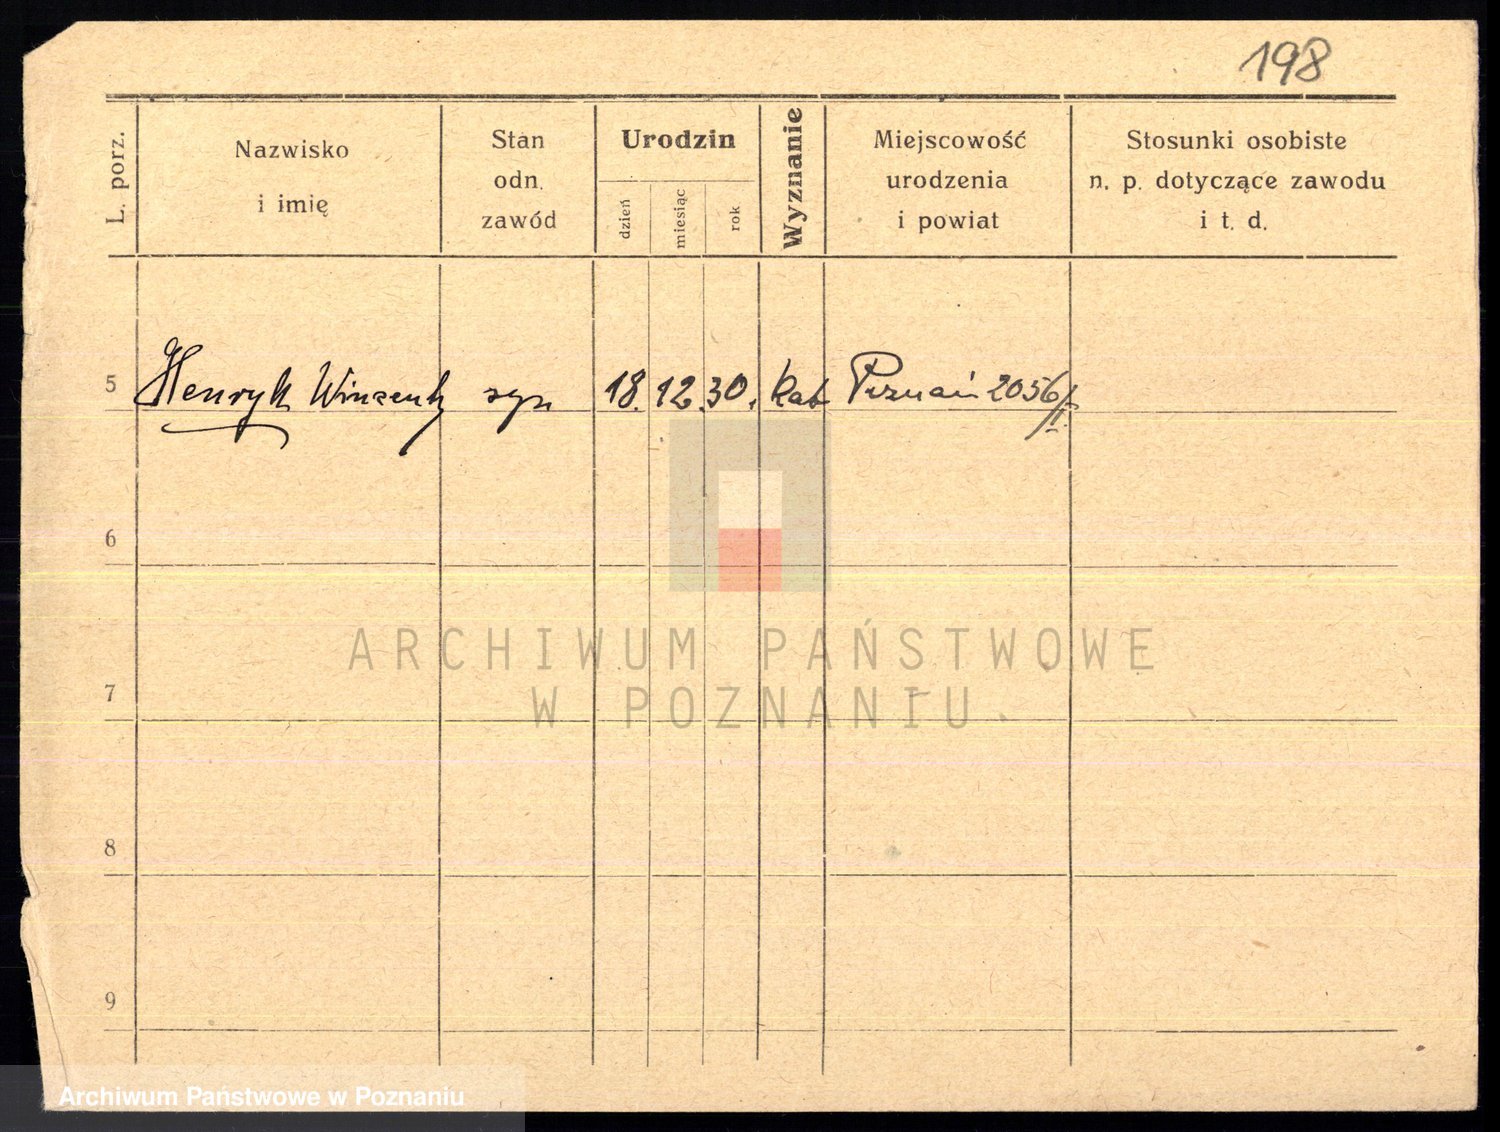 198
L. porz.
Nazwisko
i imię
Stan
odn.
zawód
Urodzin
dzień
miesiąc
rok
Wyznanie
Miejscowość
urodzenia
i powiat
Stosunki osobiste
n. p. dotyczące zawodu
i t. d.
5 Henryk Winzenty syn 18. 12. 30. kat Poznań 2056/II.
6
ARCHIWUM PAŃSTWOWE
7 W POZNANIU
8
9
Archiwum Państwowe w Poznaniu